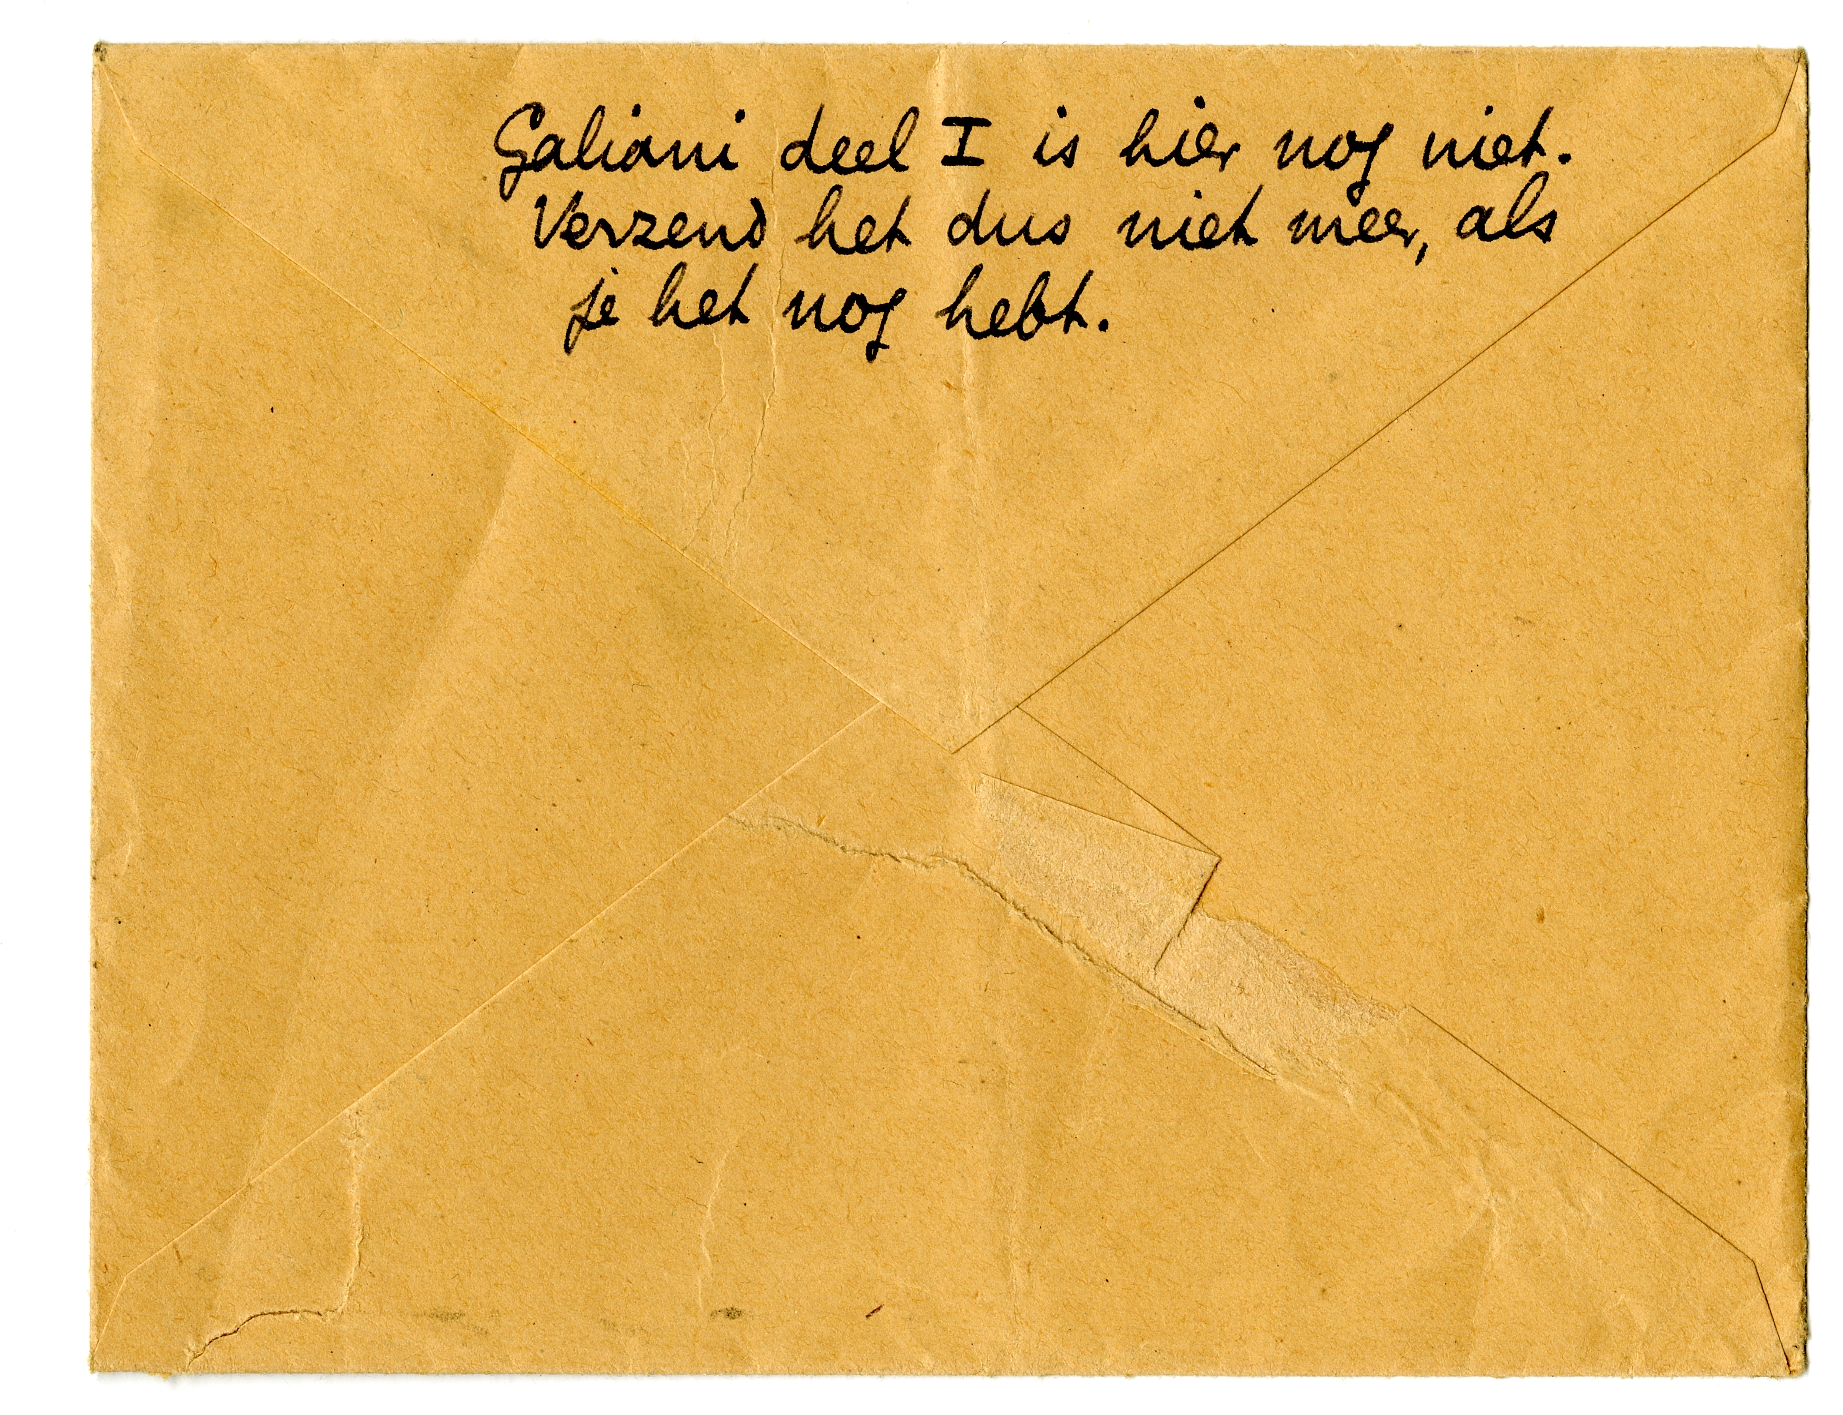 Galiani deel I is hier nog niet.
Verzend het dus niet meer, als
je het nog hebt.